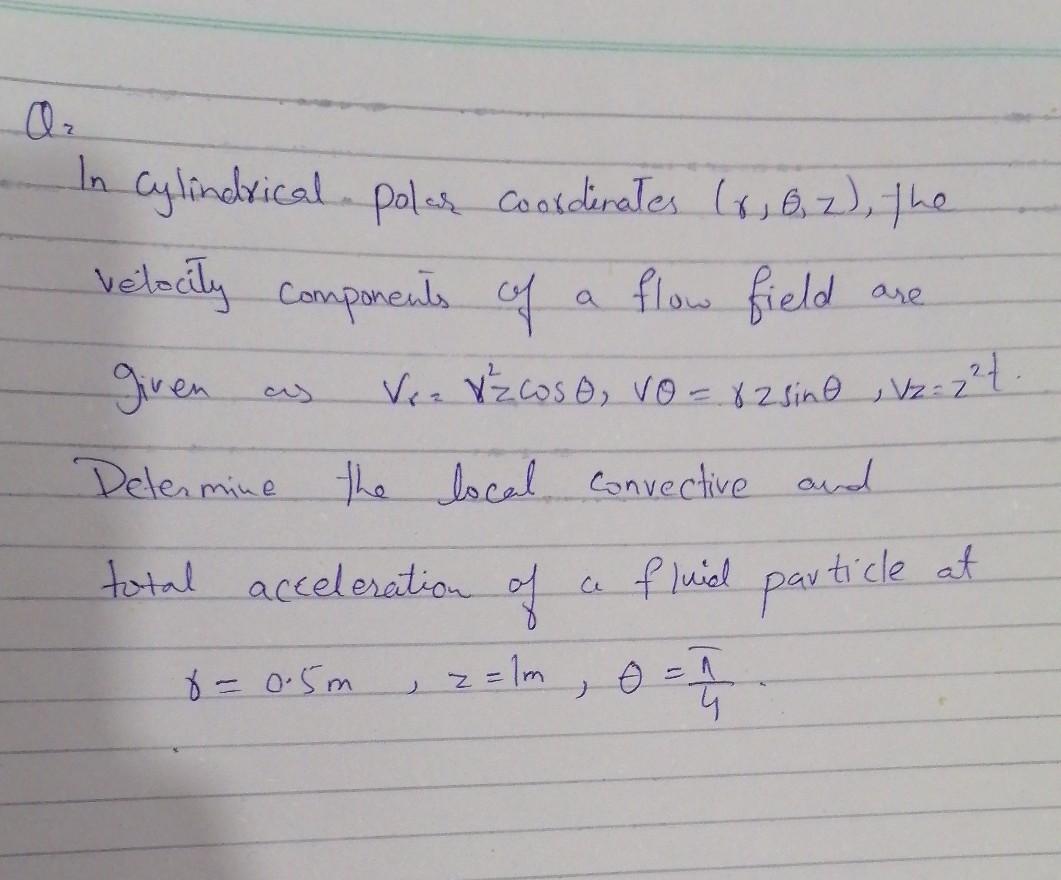 Q2
In cylindrical polar coordinates (r, θ, z), the
velocity components of a flow field are
given as Vr = r²z cos θ, Vθ = rz sin θ, Vz = z²t.
Determine the local convective and
total acceleration of a fluid particle at
r = 0.5m, z = 1m, θ = π/4.